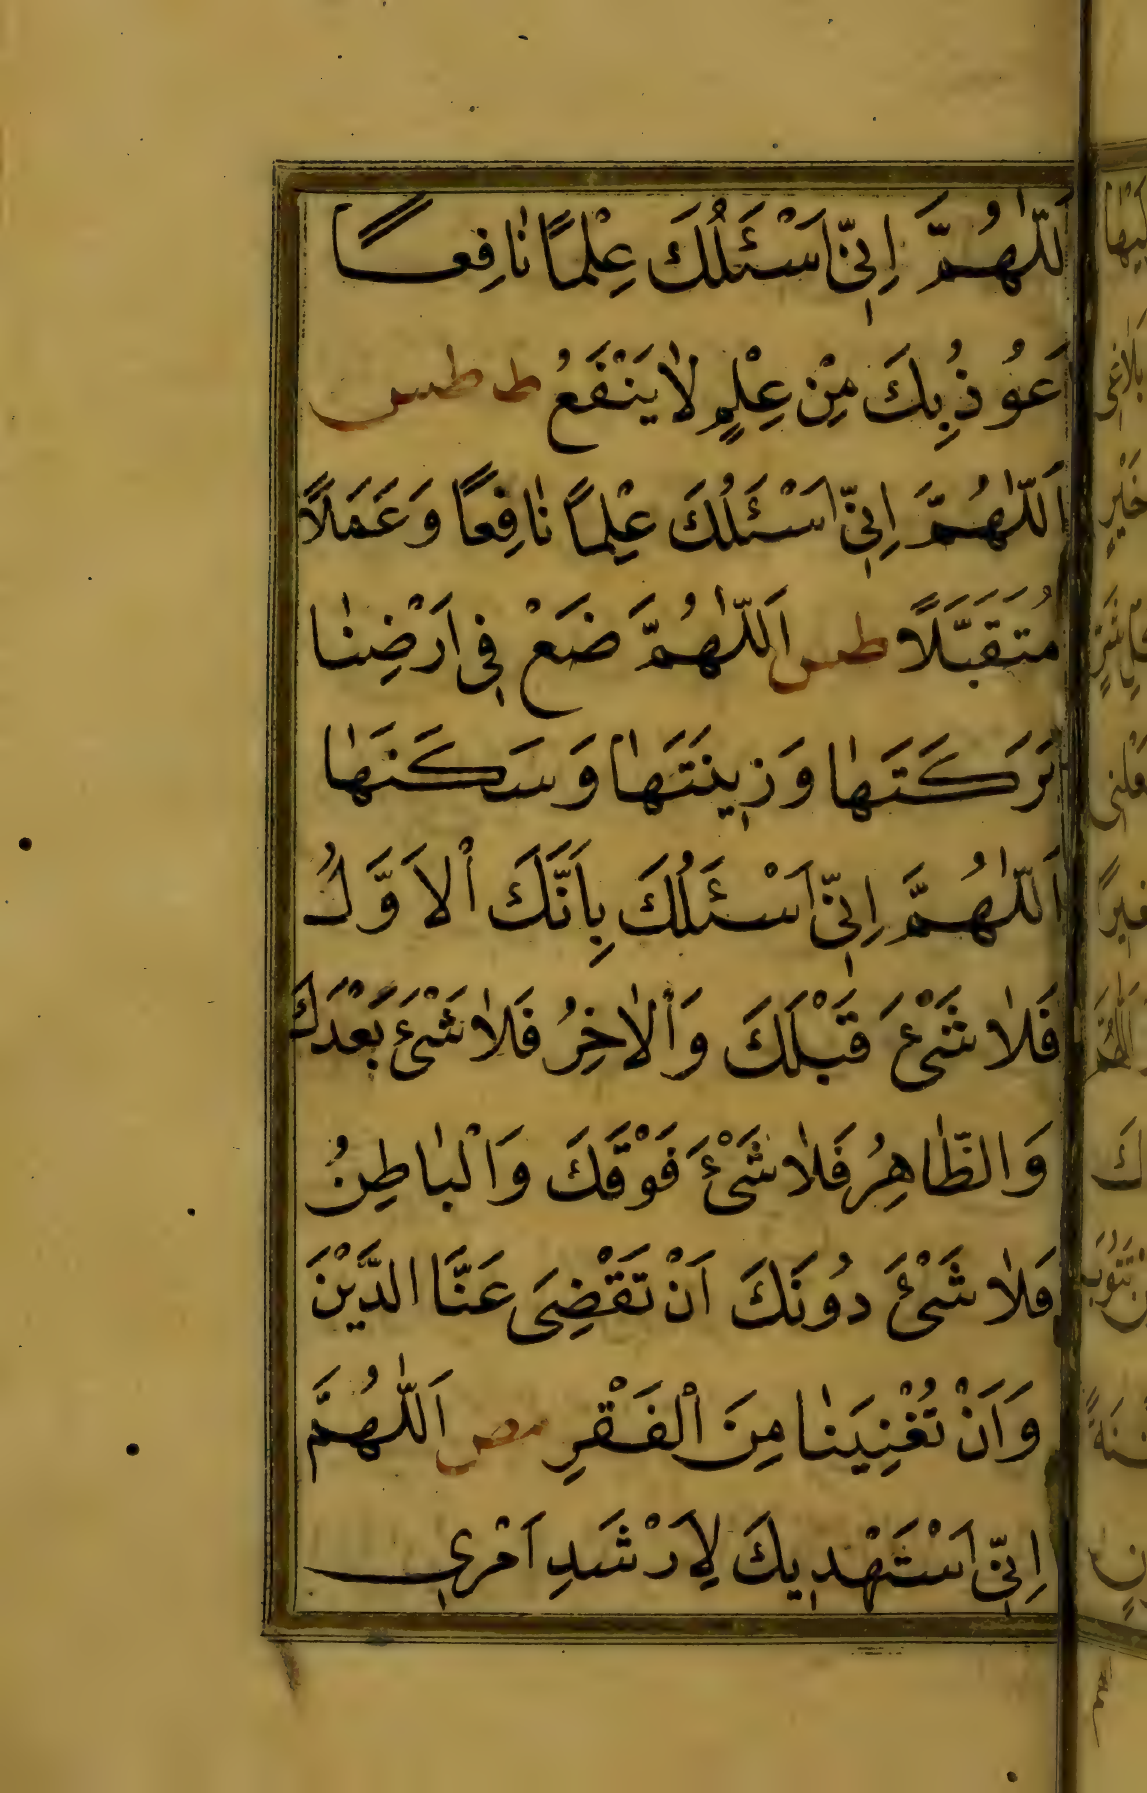 اَللّٰهُمَّ اِنّٖى اَسْئَلُكَ عِلْمًا نَافِعًا
اَعُوذُ بِكَ مِنْ عِلْمٍ لَا يَنْفَعُ ط طس
اَللّٰهُمَّ اِنّٖى اَسْئَلُكَ عِلْمًا نَافِعًا وَعَمَلًا
مُتَقَبَّلًا طس اَللّٰهُمَّ ضَعْ فٖى اَرْضِنَا
بَرَكَتَهَا وَزٖينَتَهَا وَسَكَنَهَا
اَللّٰهُمَّ اِنّٖى اَسْئَلُكَ بِاَنَّكَ اْلاَوَّلُ
فَلَا شَىْءَ قَبْلَكَ وَاْلاٰخِرُ فَلَا شَىْءَ بَعْدَكَ
وَالظَّاهِرُ فَلَا شَىْءَ فَوْقَكَ وَالْبَاطِنُ
فَلَا شَىْءَ دُونَكَ اَنْ تَقْضِىَ عَنَّا الدَّيْنَ
وَاَنْ تُغْنِيَنَا مِنَ الْفَقْرِ مص اَللّٰهُمَّ
اِنّٖى اَسْتَهْدٖيكَ لِاَرْشَدِ اَمْرٖى